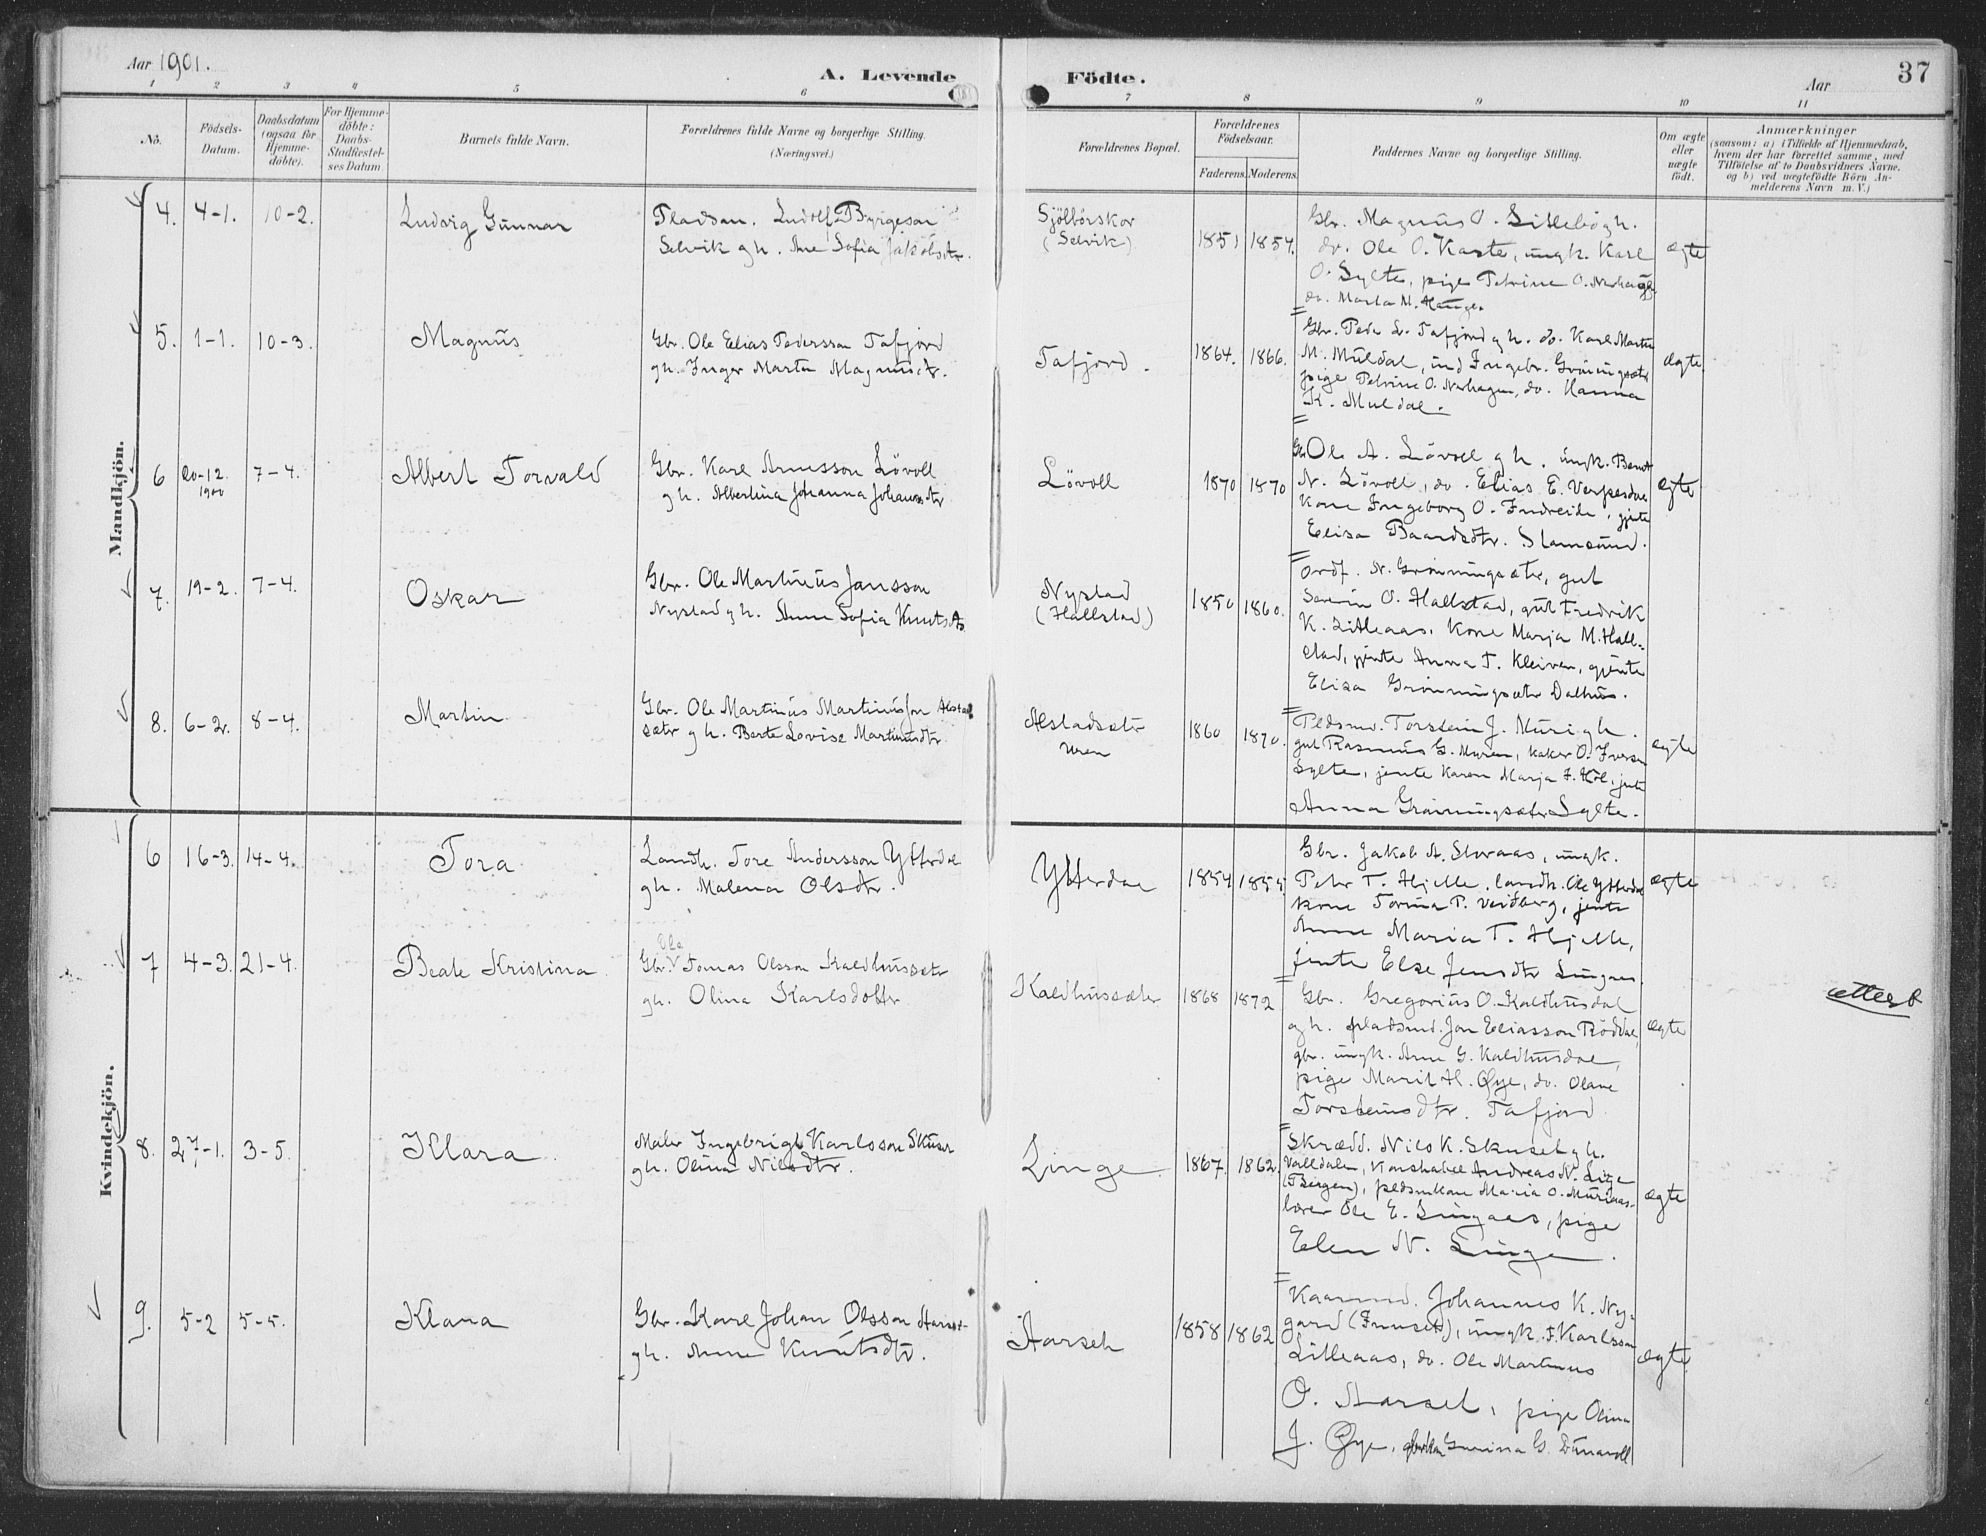 Aar 1901.
A. Levende Födte.
Aar
37
1 2 3 4 5 6 7 8 9 10 11
No.
Födsels-Datum.
Daabsdatum (ogsaa for Hjemme-döbte).
For Hjemme-döbte: Daabs-Stadfæstel-ses Datum.
Barnets fulde Navn.
Forældrenes fulde Navne og borgerlige Stilling.
(Næringsvei.)
Forældrenes Bopæl.
Forældrenes Födselsaar.
Faderens. Moderens.
Faddernes Navne og borgerlige Stilling.
Om ægte eller uægte födt.
Anmærkninger
(saasom: a) i Tilfælde af Hjemmedaab,
hvem der har forrettet samme, med
Tilföielse af to Daabsvidners Navne.
og b) ved uægtefödte Börn An-
melderens Navn m. V.)
Mandkjön.
4. 4-1. 10-2. Ludvig Gunnar
Pladsm. Ludolf Byrgeson
Selvik gh. Ane Sofia Jakobsdtr.
Sjölbörskor
(Selvik)
1851 1854.
Gbr. Magnus O. Lillebö gh.
do. Ole O. Kaste, ungk. Karl
O. Sylte, pige Petrine O. Nerhaugen
do. Marta M. Hauge.
ægte
5. 1-1. 10-3. Magnus
Gbr. Ole Elias Pedersson Tafjord
gh. Inger Marta Magnusdtr.
Tafjord.
1864. 1866.
Gbr. Peder L. Tafjord gh. do. Karl Martin
M. Muldal, ind Ingebr. Gröningsæter
pige Petrine O. Nerhagen, do. Hanna
K. Muldal.
ægte.
6 20-12. 1900 7-4. Albert Torvald
Gbr. Karl Arnesson Lövoll
gh. Albertina Johanna Johansdtr
Lövoll
1870 1870
Gbr Ole A. Lövoll gh. ungk. Bernt
N. Lövoll, do. Elias E. Verpesdal
Kone Ingeborg O. Indreide, gjente
Elisa Baardsdtr. Stamsund.
ægte
7. 19-2. 7-4. Oskar
Gbr. Ole Martinus Jansson
Nystad gh. Anne Sofia Knutsdtr
Nystad
(Hallstad)
1850 1860.
Ordf. N. Grönningsætr, gut
Severin O. Hallstad, gut Fredrik
K. Lilleaas, Kone Marja M. Hall-
stad, gjente Anna T. Kleiven, gjente
Elisa Grönningsætr Dalhus.
8. 6-2. 8-4. Martin
Gbr. Ole Martinus Martinusson Alstad
sætr gh. Berte Lovise Martinusdtr.
Alstadsætr
Uren
1860 1870.
Pladsmd. Torstein J. Muri gh.
gut Rasmus G. Myren, baker O. Iversen
Sylte, jente Karen Marja J. Kil, jente
Anna Grönningsæter Sylte.
ægte
Kvindekjön.
6 16-3. 14-4. Tora
Landh. Tore Andersson Ytterdal
gh. Malena Olsdtr.
Ytterdal
1854 1855.
Gbr. Jakob A. Storaas, ungk.
Petr T. Hjelle, landh. Ole Ytterdal
kone Torina P. Veiberg, jente
Anne Maria T. Hjelle,
jente Else Jensdtr Lingaas.
ægte
7 4-3. 21-4. Beate Kristina
Ole
Gbr. Tomas Olsson Kaldhussætr
gh. Olina Karlsdottr
Kaldhussæter
1868 1872
Gbr. Gregorius O. Kaldhusdal
gh. pladsmd. Jon Eliasson Röddal,
gbr. ungk. Arne G. Kaldhusdal,
pige Marit H. Øye, do. Olave
Torsteinsdtr. Tafjord
ægte
attest
8. 27-1. 3-5. Klara
Maler Ingebrigt Karlsson Skuset
gh. Olina Nilsdtr.
Linge
1867. 1862.
Skrædd. Nils K. Skuset gh.
Valldalen, Konstabel Andreas N. Linge
(Bergen), pladsmkone Maria O. Muriaas,
lærer Ole E. Lingaas, pige
Elen N. Linge.
ægte
9. 5-2 5-5. Klara
Gbr. Karl Johan Olsson Aarset
gh. Anne Knutsdtr.
Aarset
1858 1862
Kaarmd. Johannes K. Ny-
gard (Innset), ungk. I. Karlsson
Lilleaas, do. Ole Martinus
O. Aarset, pige Olina
J. Øye, Gurina G. Dunavoll
ægte